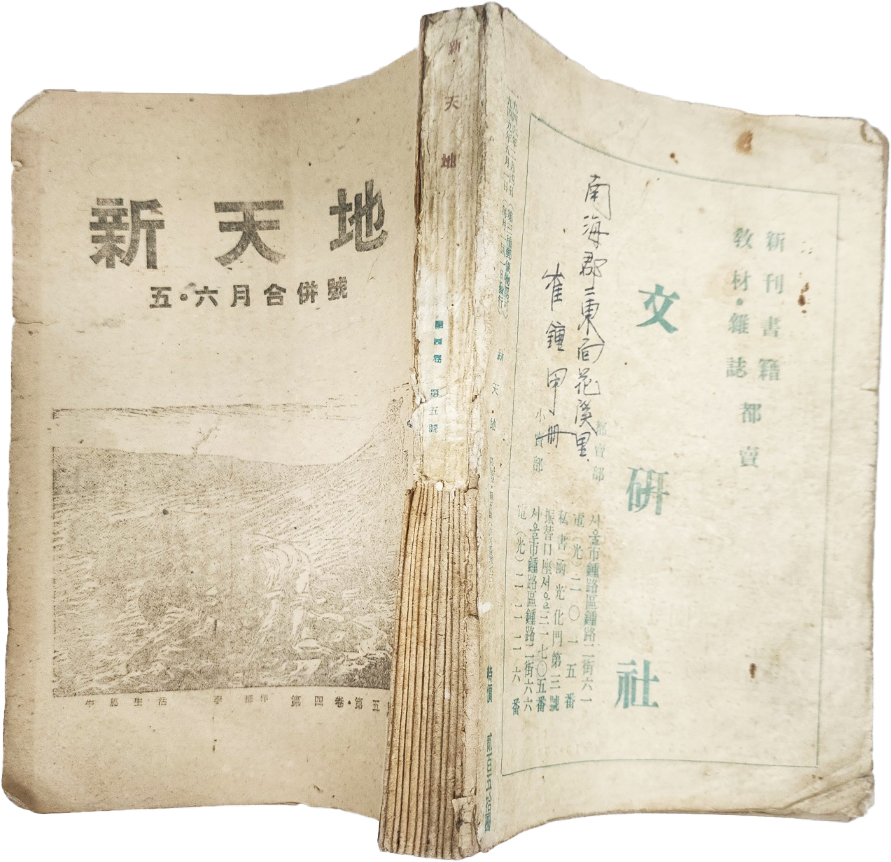 新天地
五·六月合併號
第四卷·第五
新天地
第五號
新刊書籍
教材·雜誌都賣
文硏社
南海郡三東面花溪里
崔鍾甲冊
都賣部
小賣部
서울市鍾路區鍾路二街六一
電(光)二〇一五番
私書凾光化門第三號
振替口座서울三一七〇五番
서울市鍾路區鍾路二街六六
電(光)二二二六番
特價 貳百五拾圓